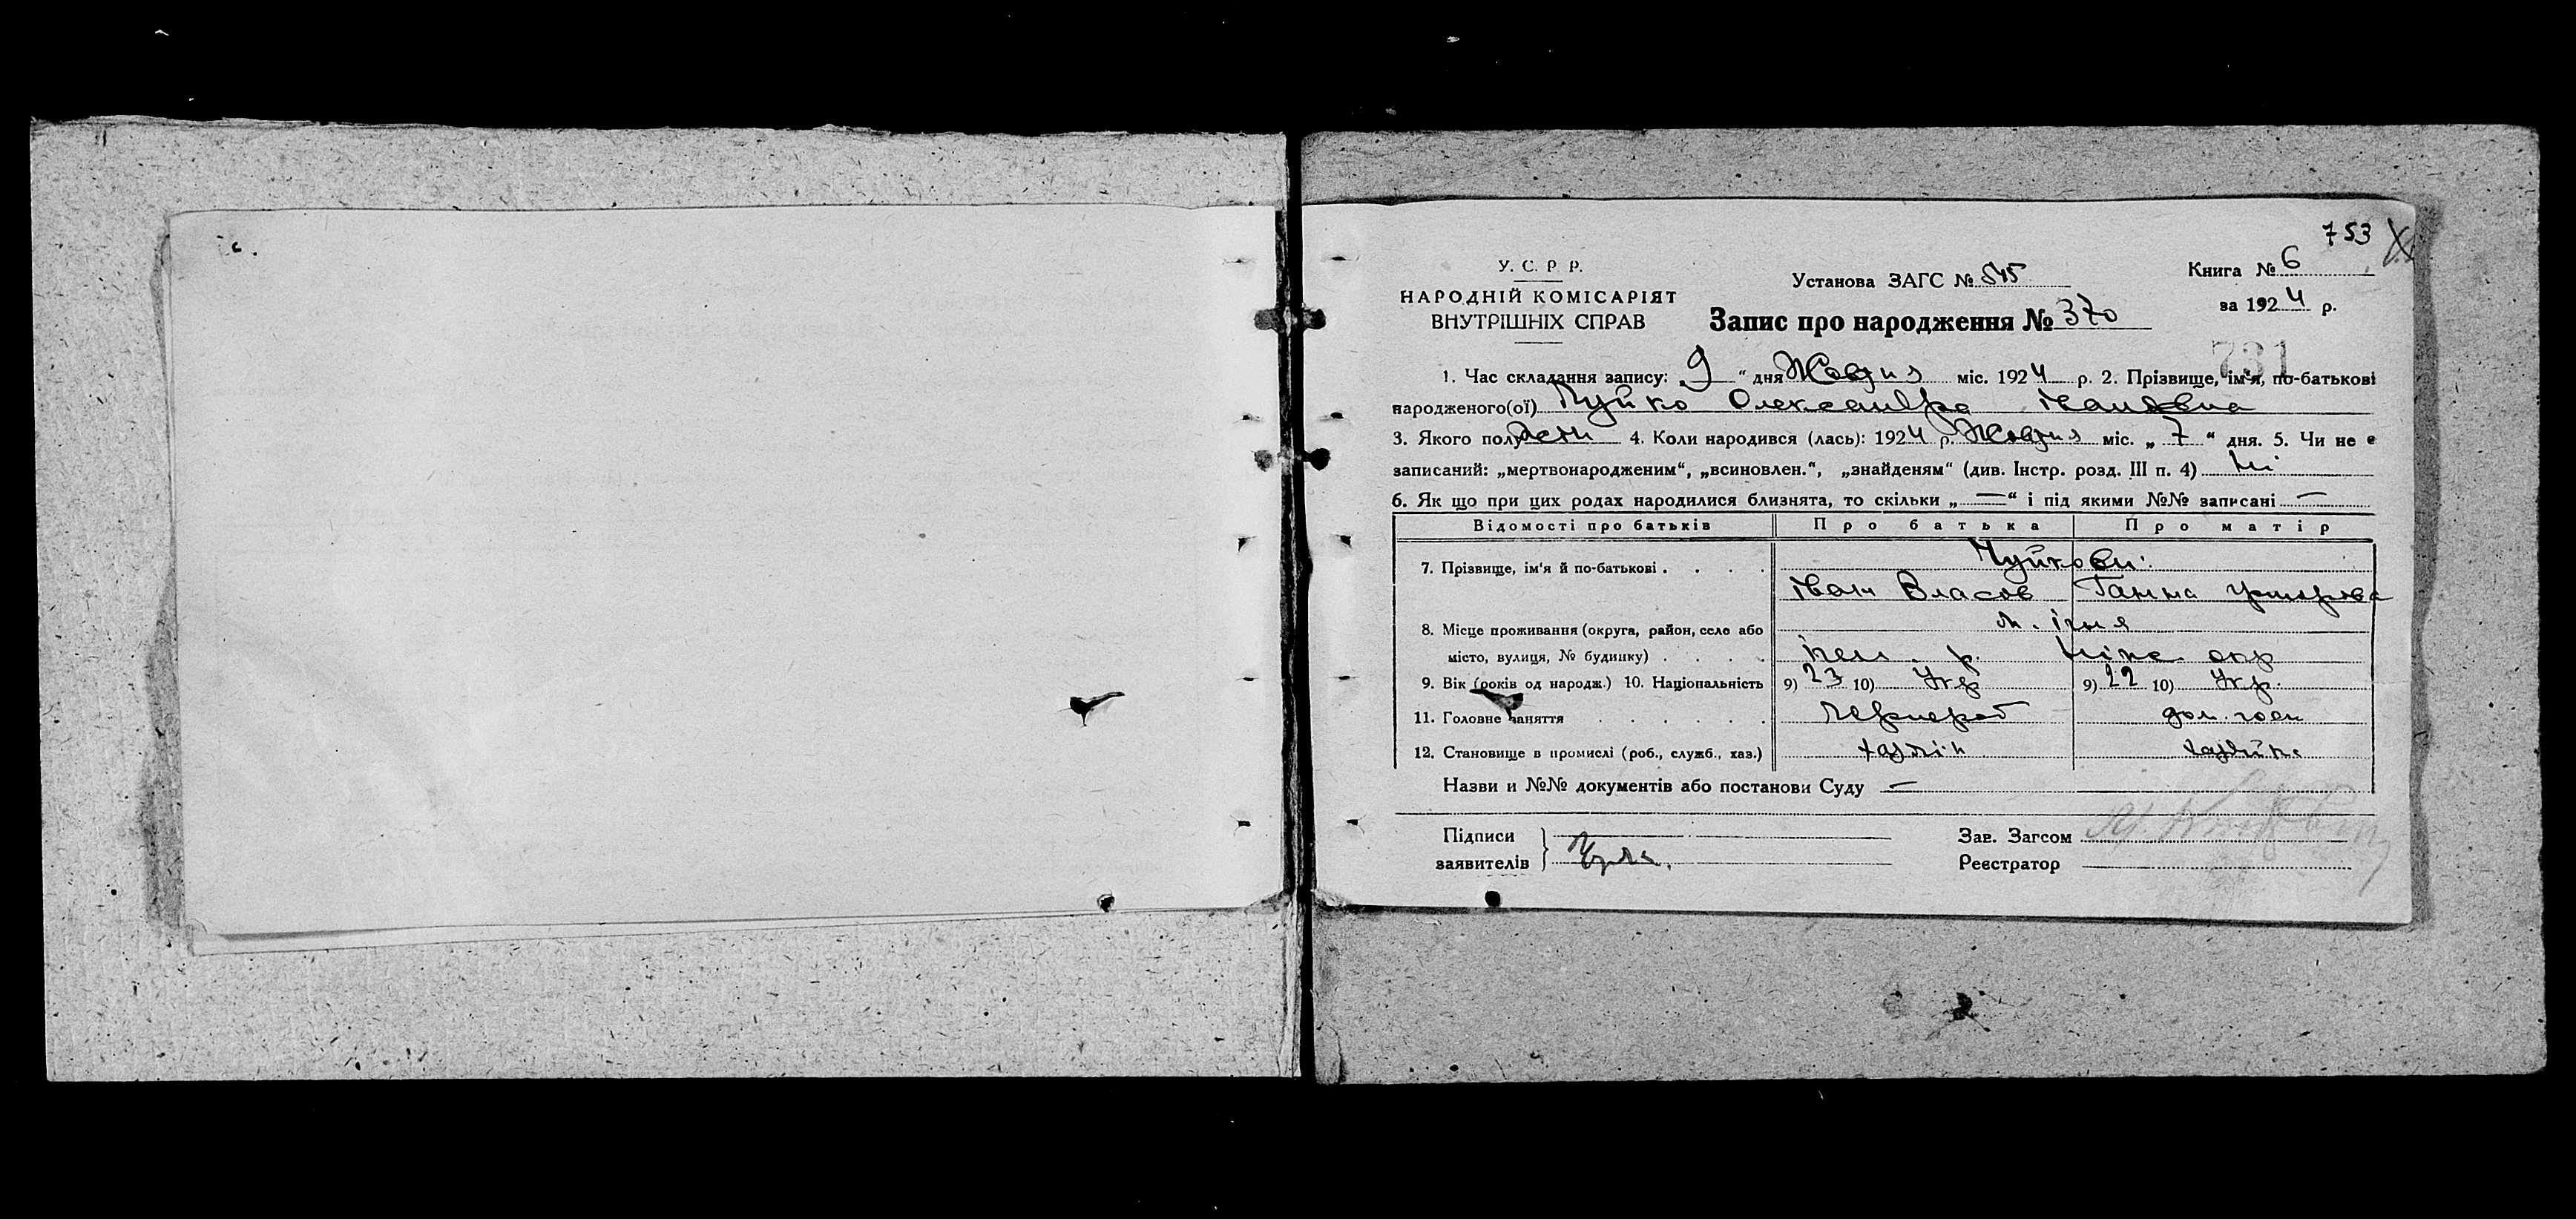 753
У. С. Р. Р.
НАРОДНІЙ КОМІСАРІЯТ
ВНУТРІШНІХ СПРАВ
Установа ЗАГС № 545
Запис про народження № 370
Книга № 6
за 1924 р.
731
1. Час складання запису: „9“ дня Жовтня міс. 1924 р. 2. Прізвище, ім'я, по-батькові
народженого(ої) Чуйко Олександра Івановна
3. Якого полу жети 4. Коли народився (лась): 1924 р. Жовтня міс. „7“ дня. 5. Чи не є
записаний: „мертвонародженим“, „всиновлен.“, „знайденям“ (див. Інстр. розд. III п. 4) Ні
6. Як що при цих родах народилися близнята, то скільки „—“ і під якими №№ записані —
Відомості про батьків Про батька Про матір
7. Прізвище, ім'я й по-батькові . . . . Чуйкови:
Іван Власов Ганна
8. Місце проживання (округа, район, село або м. Ічня
місто, вулиця, № будинку) . . . . Ічен. р. Ніже. окр
9. Вік (років од народж.) 10. Національність 9) 23 10) Укр 9) 22 10) Укр.
11. Головне заняття . . . . . . дом. госп
12. Становище в промислі (роб., служб., хаз.)
Назви и №№ документів або постанови Суду —
Підписи
заявителів
Зав. Загсом
Реєстратор